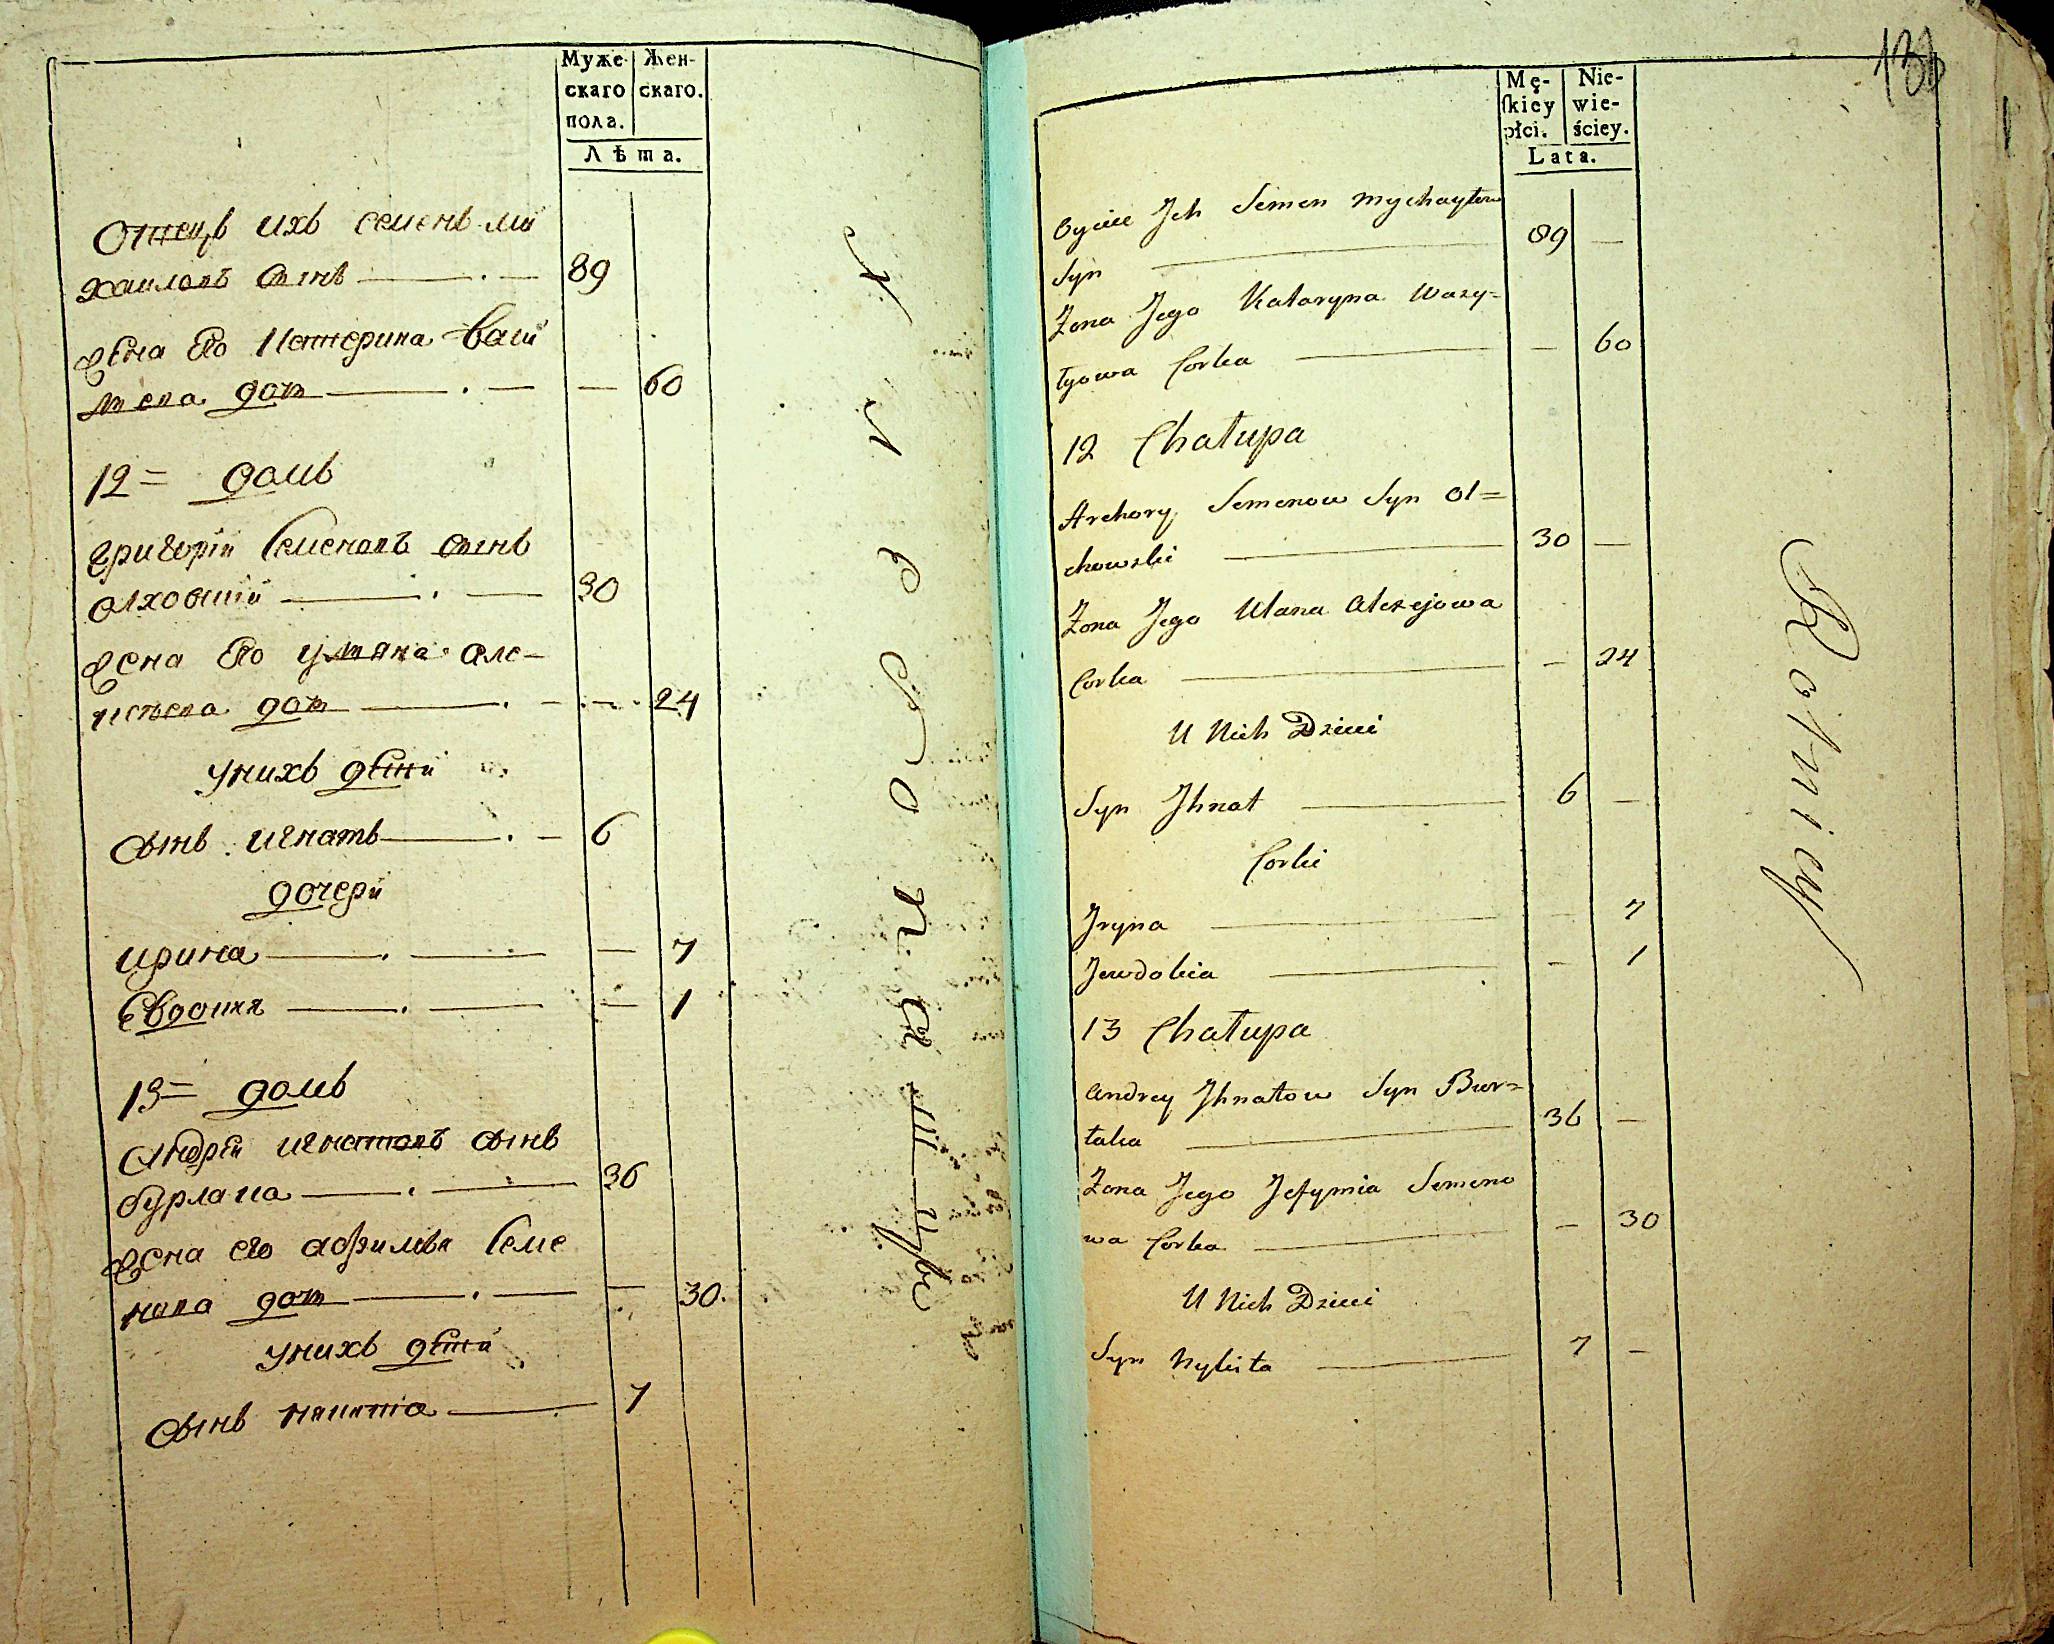 Муже- Жен-
скаго скаго.
пола.
Лѣта.
Отецъ ихъ семенъ ми
хаиловъ сынъ — 89
жена Его Катерина васи
лиева дочь — — 60
12 = домъ
григорій Семеновъ сынъ
олховскій — 30
жена Его уляна але-
ксѣева дочь — — 24
унихъ дѣти
сынъ игнатъ — 6
дочери
ирина — — 7
Евдокия — — 1
13 = домъ
андрѣй игнатовъ сынъ
бурлака — 36
жена его афимья Семе
нова дочь — — 30.
унихъ дѣти
сынъ никита — 7
131
Mę- Nie-
skiey wie-
płci. ściey.
Lata.
Oyciec Jch Semen Mychayłow
Syn — 89 —
Żona Jego Kataryna Wasy=
lyowa Corka — — 60
12 Chałupa
Arehory Semenow Syn Ol=
chowski — 30 —
Żona Jego Ulana Alexejowa
Corka — — 24
U Nich Dzieci
Syn Jhnat — 6 —
Corki
Jryna — — 7
Jewdokia — — 1
13 Chałupa
Andrey Jhnatow Syn Bur=
łaka — 36 —
Żona Jego Jefymia Semeno
wa Corka — — 30
U Nich Dzieci
Syn Nykita — 7 —
Rolnicy